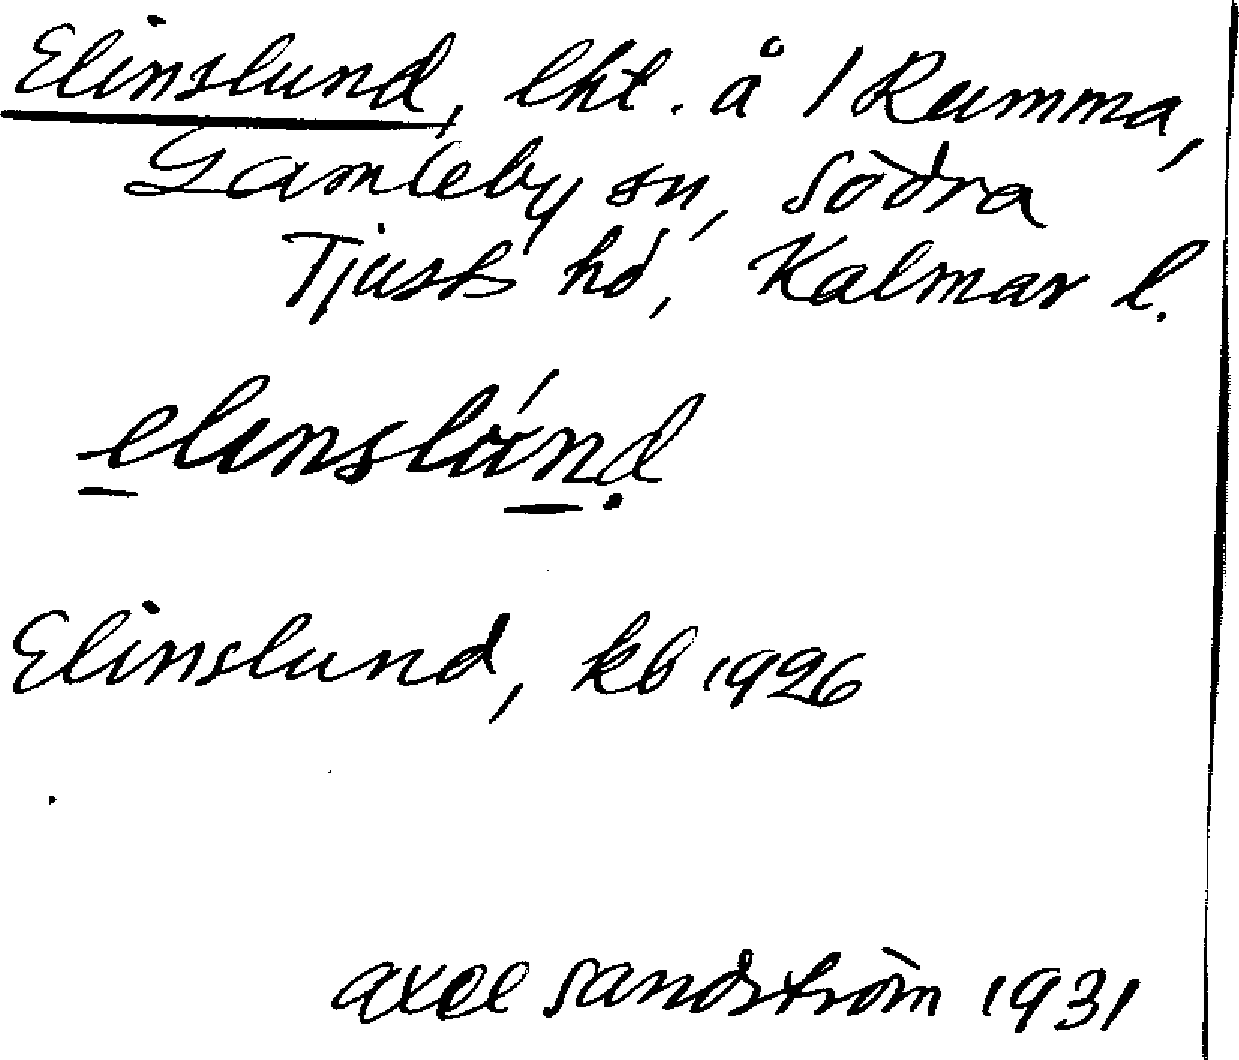 Elinslund, lht. å 1 Rumma,
Gamleby sn, Södra
Tjusts hd, Kalmar l.
elenslönd
Elinslund, kb 1926
Axel Sandström 1931